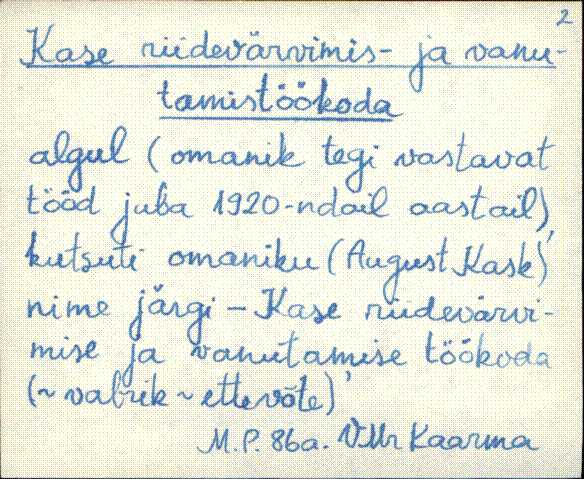 2
Kase riidevärvimis- ja vanu-
tamistöökoda
algul (omanik tegi vastavat
tööd juba 1920-ndail aastail)
kutsuti omaniku (August Kask)
nime järgi - Kase riidevärvi-
mise ja vanutamise töökoda
(~ vabrik ~ ettevõte)
M.P. 86a. VMr Kaarma